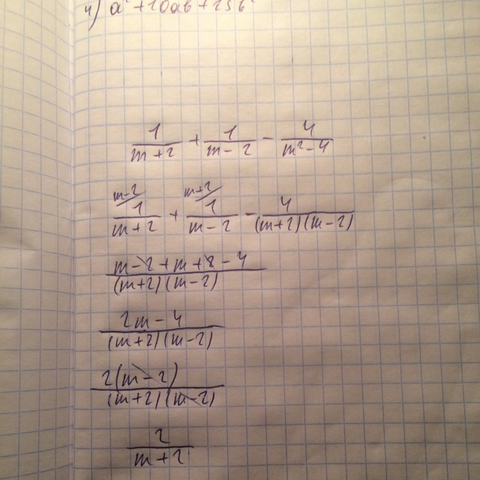 4) a² + 10ab + 25b²
1/(m+2) + 1/(m-2) - 4/(m²-4)
m-2/ 1/(m+2) + m+2/ 1/(m-2) - 4/((m+2)(m-2))
(m-2+m+2-4)/((m+2)(m-2))
(2m-4)/((m+2)(m-2))
2(m-2)/((m+2)(m-2))
2/(m+2)